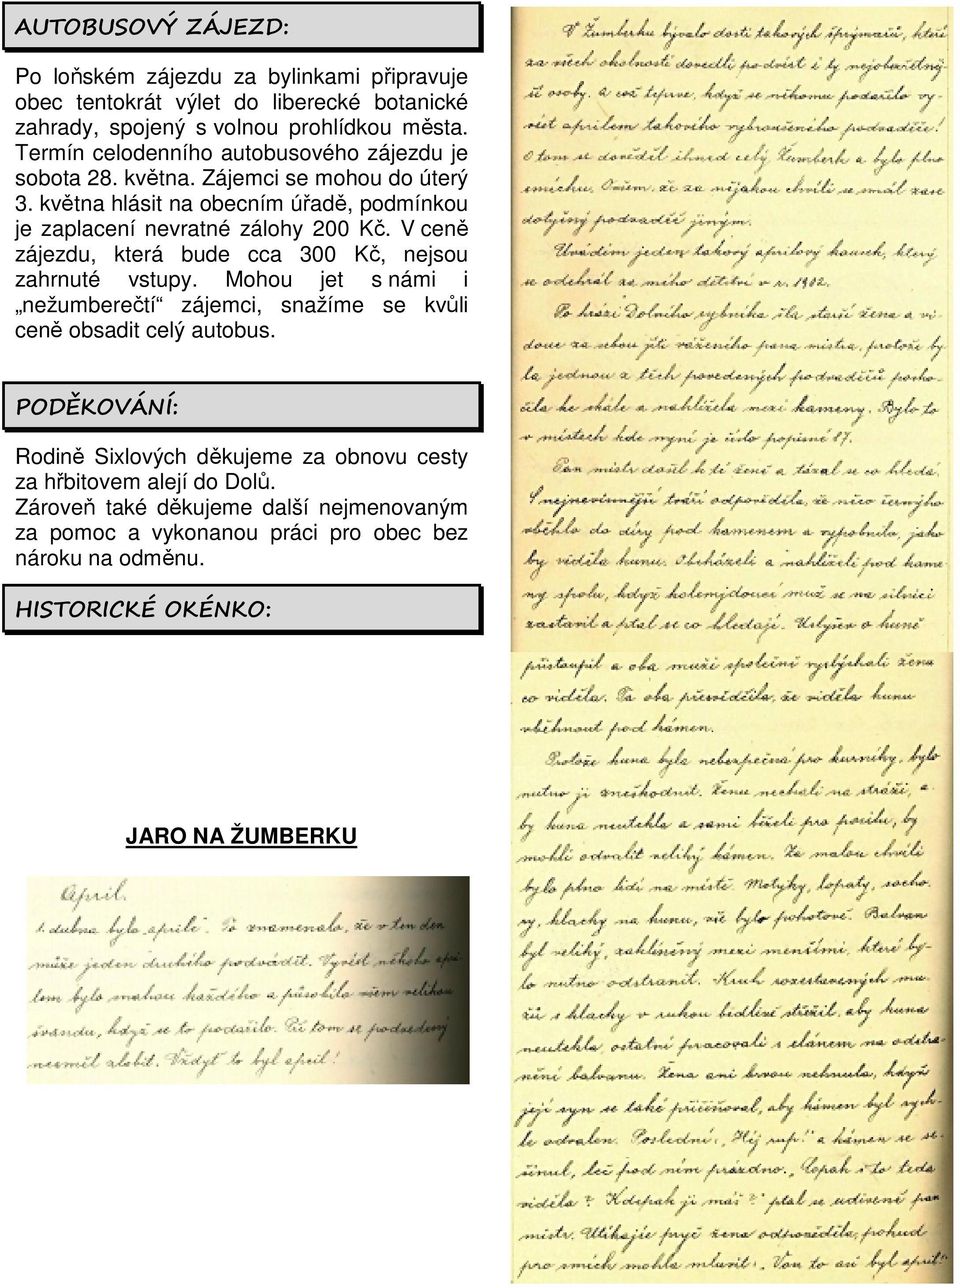 AUTOBUSOVÝ ZÁJEZD:
Po loňském zájezdu za bylinkami připravuje
obec tentokrát výlet do liberecké botanické
zahrady, spojený s volnou prohlídkou města.
Termín celodenního autobusového zájezdu je
sobota 28. května. Zájemci se mohou do úterý
3. května hlásit na obecním úřadě, podmínkou
je zaplacení nevratné zálohy 200 Kč. V ceně
zájezdu, která bude cca 300 Kč, nejsou
zahrnuté vstupy. Mohou jet s námi i
„nežumberečtí“ zájemci, snažíme se kvůli
ceně obsadit celý autobus.
PODĚKOVÁNÍ:
Rodině Sixlových děkujeme za obnovu cesty
za hřbitovem alejí do Dolů.
Zároveň také děkujeme další nejmenovaným
za pomoc a vykonanou práci pro obec bez
nároku na odměnu.
HISTORICKÉ OKÉNKO:
JARO NA ŽUMBERKU
April.
1. dubna bylo „aprile“. To znamenalo, že v ten den
může jeden druhého podvádět. Vyvést někoho apri
lem bylo snahou každého a působilo všem velikou
švandu, když se to podařilo. Při tom se podvedený
nesměl zlobit. Vždyť to byl april!
V Žumberku bývalo dosti takových šprýmařů, kteří
za všech okolností dovedli podvést i ty nejobezřetněj-
ší osoby. A což teprve, když se někomu podařilo vy-
vést aprilem takového vybroušeného podvaděče!
O tom se dověděl ihned celý Žumberk a bylo plno
smíchu. Ovšem, že za nějakou chvíli se smál zase
dotyčný podvaděč jiným.
Uvádím jeden takový aprilový kousek, který
se odehrál za mého dětství v r. 1902.
Po hrázi Dolního rybníka šla starší žena a vi-
douc za sebou jíti váženého pana mistra, protože by-
la jednou z těch povedených podvaděčů posko-
čila ke skále a nahlížela mezi kameny. Bylo to
v místech kde nyní je číslo popisné 87.
Pan mistr došel k té ženě a tázal se co hledá.
S nejnevinnější tváří odpověděla, že něco černého
vběhlo do díry pod kamenem a vypobnilo, jako
by viděla kunu. Obcházeli a nahlíželi pod kame-
ny spolu, když kolemjdoucí muž se na silnici
zastavil a ptal se co hledají. Uslyšev o kuně
přistoupil a oba muži společně vyslýchali ženu
co viděla. Ta oba přesvědčila, že viděla kunu
vběhnout pod kámen.
Protože kuna byla nebezpečná pro kurníky, bylo
nutno ji zneškodnit. Ženu nechali na stráži, a-
by kuna neutekla a sami běželi pro posilu, by
mohli odvalit veliký kámen. Za malou chvíli
bylo plno lidí na místě. Motyky, lopaty, socho-
ry, klacky na kunu, vše bylo pohotově. Balvan
byl veliký, zaklíněný mezi menšími, které by-
lo nutno odstranit. Kruh rozestavených mu-
žů s klacky v rukou bedlivě střežil, aby kuna
neutekla, ostatní pracovali s elánem na odstra-
nění balvanu. Žena ani brvou nehnula, když
její syn se také přičiňoval, aby kámen byl rych-
le odvalen. Poslední: „Hej rup!“ a kámen se se-
šinul, leč pod ním prázdno. „Copak si to teda
viděla? Kdepak ji máš?“ ptal se udiveně pan
mistr. Utíkajíc pryč žena odpověděla, pokud
pro smích mohla mluvit: „Von to asi byl april!“